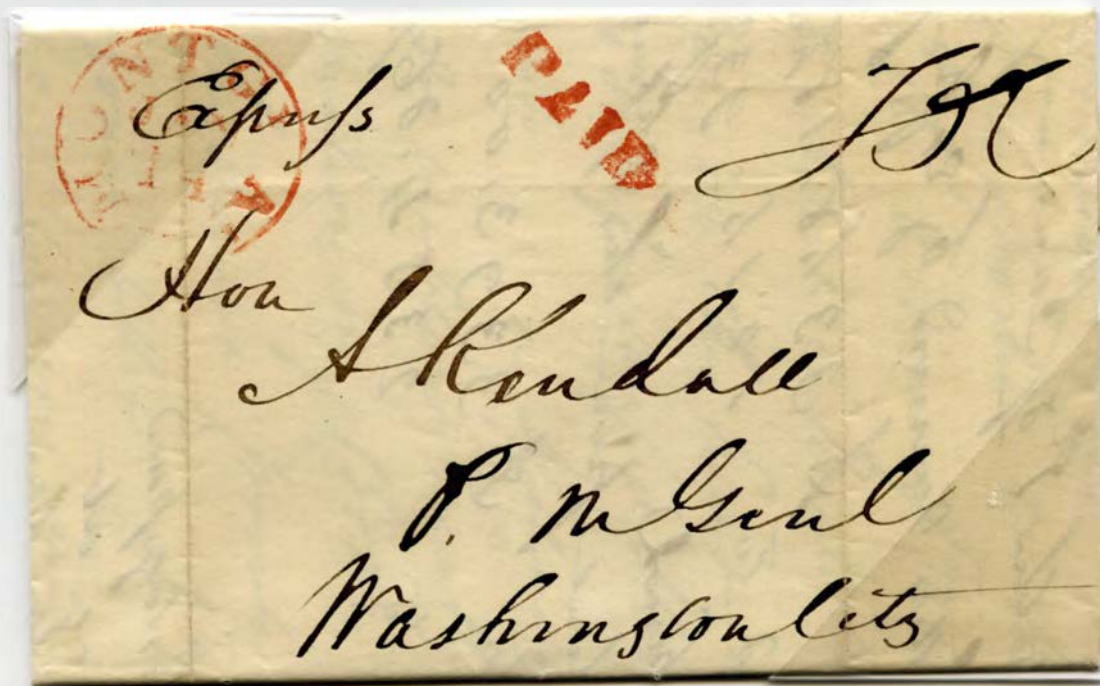 Express
PAID
Hon
A Kendall
P. M Genl
Washington City